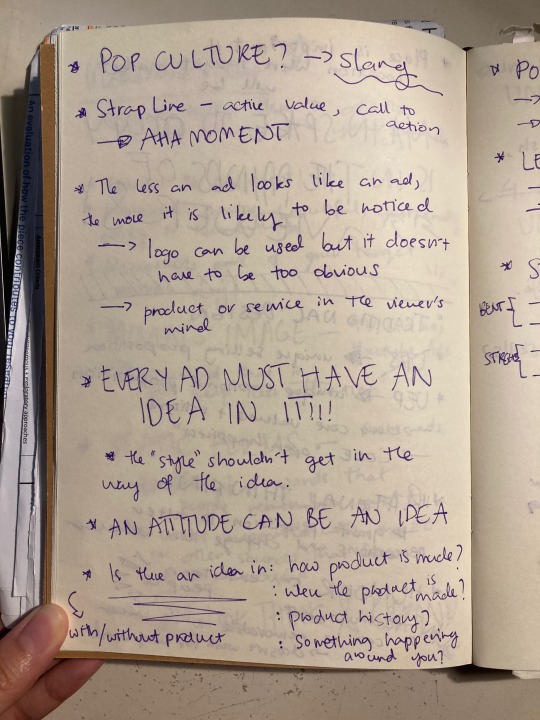 * POP CULTURE? → Slang
* Strap Line – active value, call to
action
→ AHA MOMENT
* The less an ad looks like an ad,
the more it is likely to be noticed
→ logo can be used but it doesn't
have to be too obvious
→ product or service in the viewer's
mind
* EVERY AD MUST HAVE AN
IDEA IN IT!!!
* the "style" shouldn't get in the
way of the idea.
* AN ATTITUDE CAN BE AN IDEA
* Is there an idea in: how product is made?
: were the product is
made?
: product history?
with/without product : Something happening
around you?
* PO
→
→
* LE
→
→
* S
BENT [
STRAIGHT [
An evaluation of how the piece contributes to your